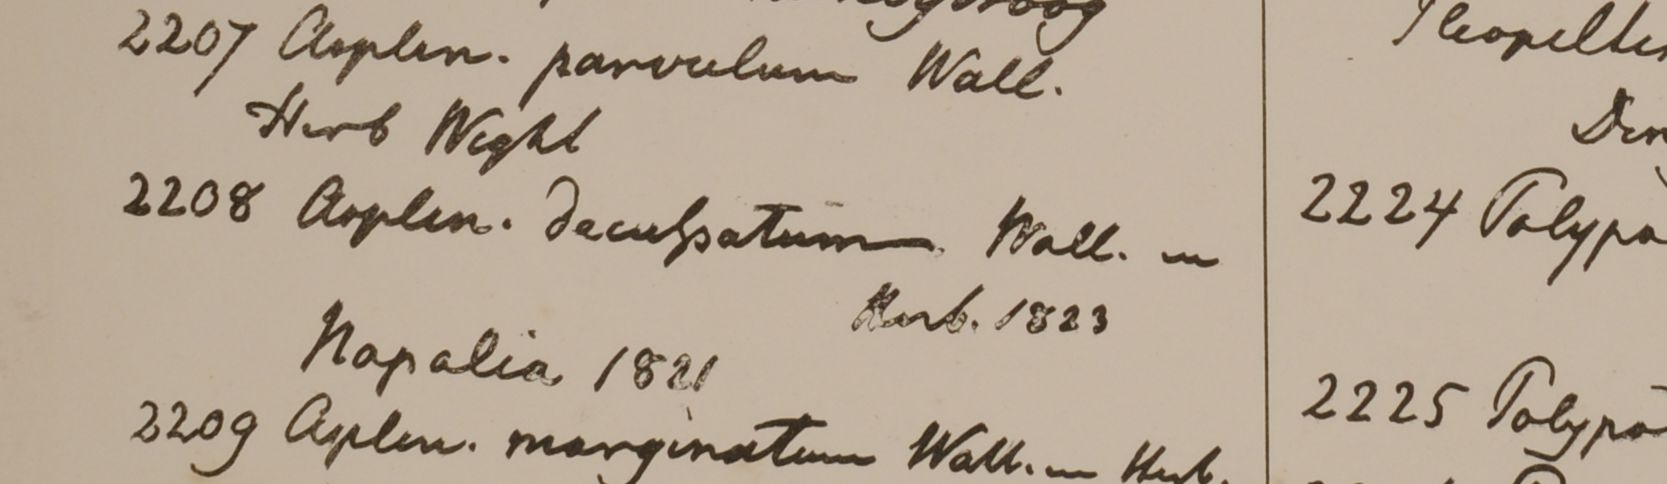 2207 Asplen. parvulum Wall.
Herb Wight
2208 Asplen. decussatum Wall. in
Herb. 1823
Napalia 1821
2209 Asplen. marginatum Wall. in Herb.
2224 Polypo
2225 Polypo